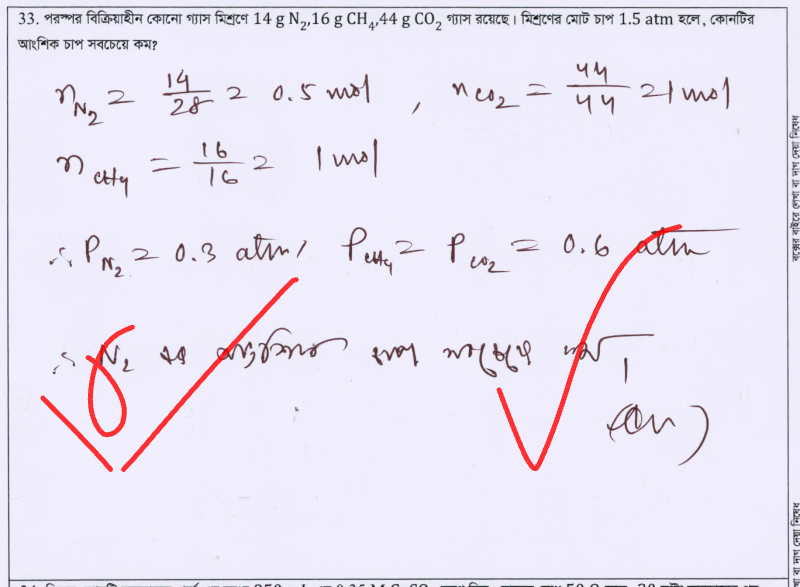 33. পরস্পর বিক্রিয়াহীন কোনো গ্যাস মিশ্রণে 14 g N₂,16 g CH₄,44 g CO₂ গ্যাস রয়েছে। মিশ্রণের মোট চাপ 1.5 atm হলে, কোনটির
আংশিক চাপ সবচেয়ে কম?
n_N₂ = 14/28 = 0.5 mol , n_CO₂ = 44/44 = 1 mol
n_CH₄ = 16/16 = 1 mol
∴ P_N₂ = 0.3 atm, P_CH₄ = P_CO₂ = 0.6 atm
∴ N₂ এর আংশিক চাপ সবচেয়ে কম।
(Ans)
বক্সের বাইরে লেখা বা দাগ দেয়া নিষেধ
বা দাগ দেয়া নিষেধ